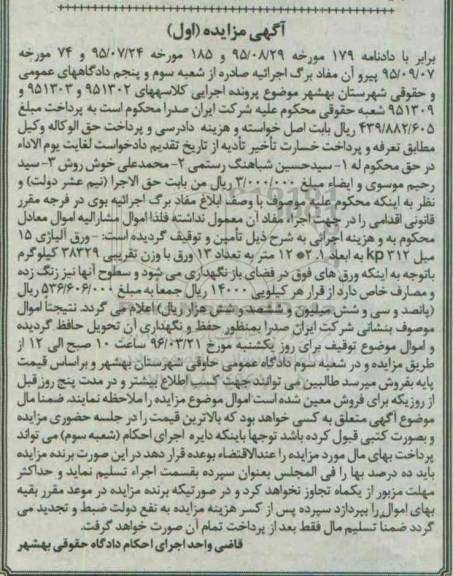 آگهی مزایده (اول)
برابر با دادنامه ۱۷۹ مورخه ۹۵/۰۸/۲۹ و ۱۸۵ مورخه ۹۵/۰۷/۲۴ و ۷۴ مورخه
۹۵/۰۹/۰۷ پیرو آن مفاد برگ اجرائیه صادره از شعبه سوم و پنجم دادگاههای عمومی
و حقوقی شهرستان بهشهر موضوع پرونده اجرایی کلاسههای ۹۵۱۳۰۲ و ۹۵۱۳۰۳ و
۹۵۱۳۰۹ شعبه حقوقی محکوم علیه شرکت ایران صدرا محکوم است به پرداخت مبلغ
۴۳۹/۸۸۲/۶۰۵ ریال بابت اصل خواسته و هزینه دادرسی و پرداخت حق الوکاله وکیل
مطابق تعرفه و پرداخت خسارت تأخیر تأدیه از تاریخ تقدیم دادخواست لغایت یوم الاداء
در حق محکوم له ۱- سیدحسین شباهنگ رستمی ۲- محمدعلی خوش روش ۳- سید
رحیم موسوی و ایضا مبلغ ۳/۰۰۰/۰۰۰ ریال من بابت حق الاجرا (نیم عشر دولت) و
نظر به اینکه محکوم علیه موصوف با وصف ابلاغ مفاد برگ اجرائیه بوی در فرجه مقرر
قانونی اقدامی را در جهت اجراء مفاد آن معمول نداشته فلذا اموال مشارالیه اموال معادل
محکوم به و هزینه اجرائی به شرح ذیل تأمین و توقیف گردیده است: - ورق آلیاژی ۱۵
میل kp ۳۱۲ به ابعاد ۳.۱*۱۲ متر به تعداد ۱۳ ورق با وزن تقریبی ۳۸۳۲۹ کیلوگرم
باتوجه به اینکه ورق های فوق در فضای باز نگهداری می شود و سطوح آنها نیز زنگ زده
و مصارف خاص دارد از قرار هر کیلویی ۱۴۰۰۰ ریال جمعاً به مبلغ ۵۳۶/۶۰۶/۰۰۰ ریال
(پانصد و سی و شش میلیون و ششصد و شش هزار ریال) اعلام می گردد. نتیجتاً اموال
موصوف بنشانی شرکت ایران صدرا بمنظور حفظ و نگهداری آن تحویل حافظ گردیده
و اموال موضوع توقیف برای روز یکشنبه مورخ ۹۶/۰۳/۲۱ ساعت ۱۰ صبح الی ۱۲ از
طریق مزایده و در شعبه سوم دادگاه عمومی حقوقی شهرستان بهشهر و براساس قیمت
پایه بفروش میرسد طالبین می توانند جهت کسب اطلاع بیشتر و در مدت پنج روز قبل
از روزیکه برای فروش معین شده است اموال موضوع مزایده را ملاحظه نمایند. ضمنا مال
موضوع آگهی متعلق به کسی خواهد بود که بالاترین قیمت را در جلسه حضوری مزایده
و بصورت کتبی قبول کرده باشد توجهاً باینکه دایره اجرای احکام (شعبه سوم) می تواند
پرداخت بهای مال مورد مزایده را عندالاقتضاء بوعده قرار دهد در این صورت برنده مزایده
باید ده درصد بها را فی المجلس بعنوان سپرده بقسمت اجراء تسلیم نماید و حداکثر
مهلت مزبور از یکماه تجاوز نخواهد کرد و در صورتیکه برنده مزایده در موعد مقرر بقیه
بهای اموال را نپردازد سپرده پس از کسر هزینه مزایده به نفع دولت ضبط و تجدید می
گردد ضمناً تسلیم مال فقط بعد از پرداخت تمام آن صورت خواهد گرفت.
قاضی واحد اجرای احکام دادگاه حقوقی بهشهر